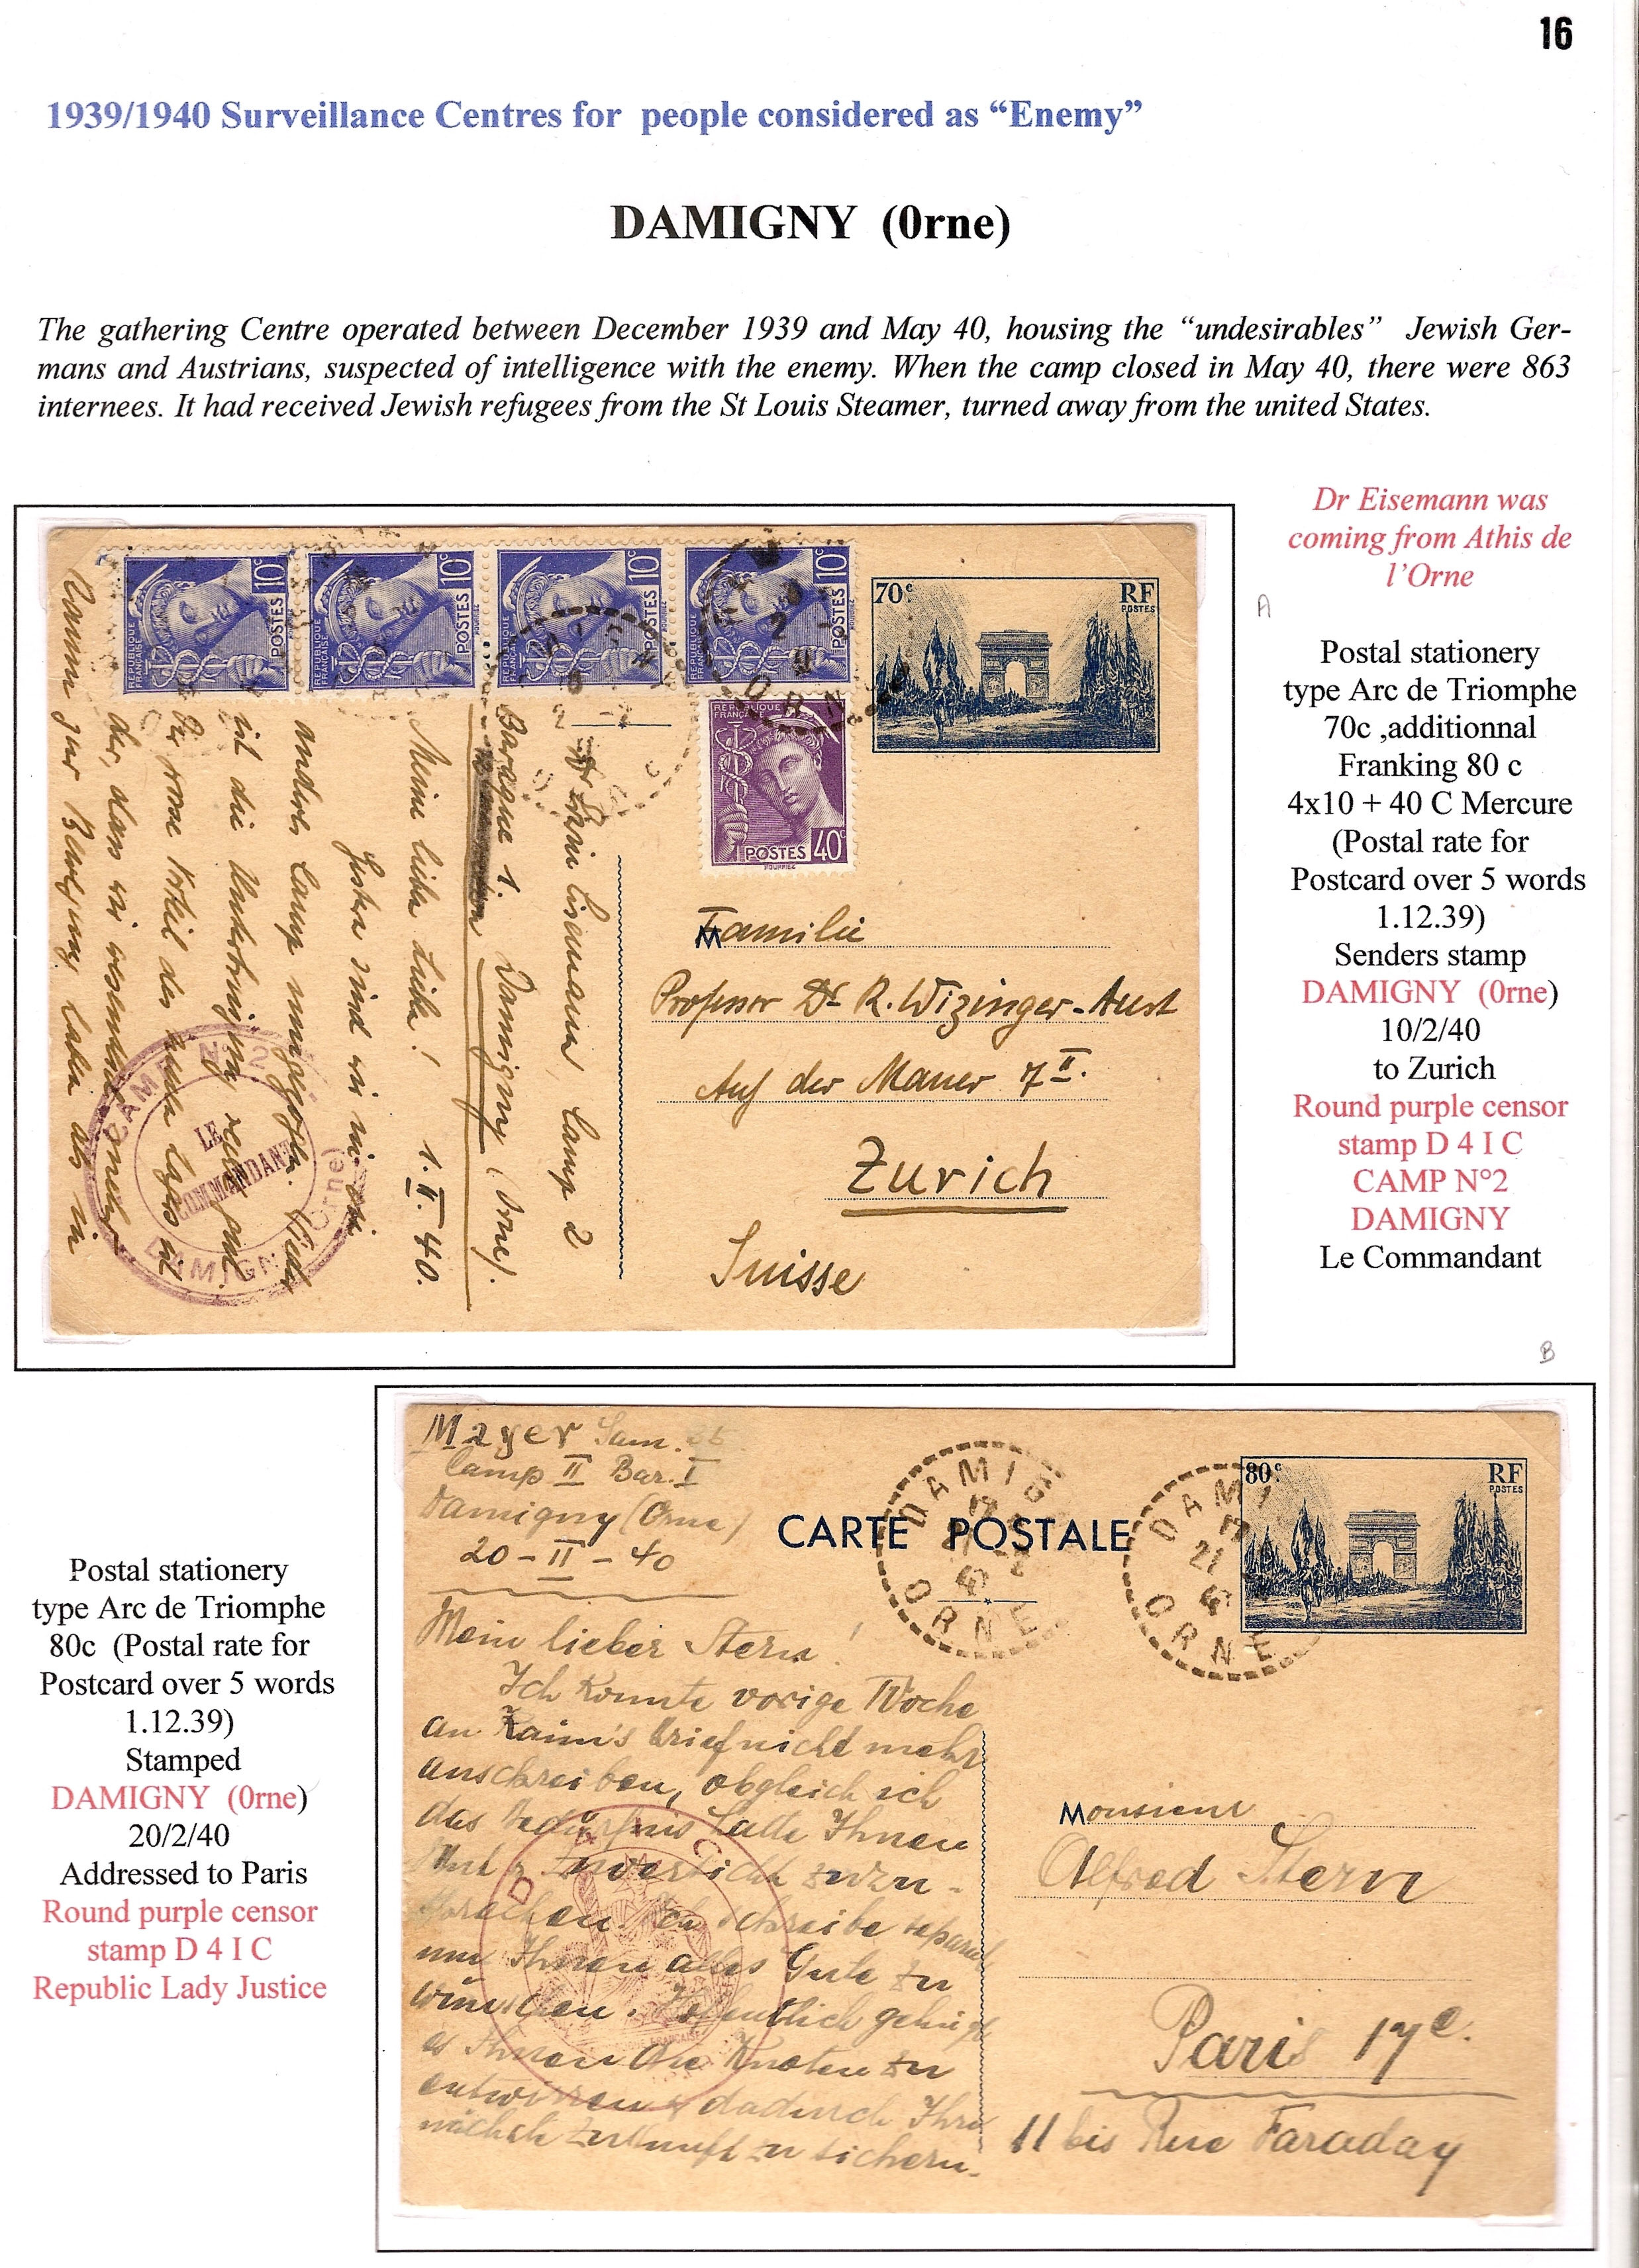 16
1939/1940 Surveillance Centres for people considered as “Enemy”
DAMIGNY (0rne)
The gathering Centre operated between December 1939 and May 40, housing the “undesirables” Jewish Ger-
mans and Austrians, suspected of intelligence with the enemy. When the camp closed in May 40, there were 863
internees. It had received Jewish refugees from the St Louis Steamer, turned away from the united States.
Dr Eisemann was
coming from Athis de
l’Orne
A
Postal stationery
type Arc de Triomphe
70c ,additionnal
Franking 80 c
4x10 + 40 C Mercure
(Postal rate for
Postcard over 5 words
1.12.39)
Senders stamp
DAMIGNY (0rne)
10/2/40
to Zurich
Round purple censor
stamp D 4 I C
CAMP N°2
DAMIGNY
Le Commandant
B
RÉPUBLIQUE FRANÇAISE POSTES 10c
RÉPUBLIQUE FRANÇAISE POSTES 10c
RÉPUBLIQUE FRANÇAISE POSTES 10c
RÉPUBLIQUE FRANÇAISE POSTES 10c
70c RF
POSTES
RÉPUBLIQUE
FRANÇAISE
POSTES 40c
Familie
Professor Dr R. Wizinger-Aust
Auf der Mauer 7 II.
Zurich
Suisse
Eisemann, Camp 2
Baraque 1. Damigny (Orne).
Meine liebe Liesel! 1.II.40.
Gestern sind wir in ein
anderes Camp umgezogen.
ist die Unterbringung recht gut
CAMP N° 2
LE
COMMANDANT
DAMIGNY (Orne)
Mayer Sam.
Camp II Bar. I
Damigny (Orne)
20-II-40
CARTE POSTALE
DAMIG
17
21 -2
40
ORNE
DAMI
17
21
40
ORNE
80c RF
POSTES
Mein lieber Stern!
Ich konnte vorige Woche
an Kaim's Brief nicht mehr
anschreiben, obgleich ich
das Bedürfnis hatte Ihnen
Mut & Zuversicht zuzu-
sprechen. Ich schreibe separat
um Ihnen alles Gute zu
wünschen. Hoffentlich gelingt
es Ihnen die Knoten zu
entwirren & dadurch Ihre
nächste Zukunft zu sichern.
D 4 I C
Monsieur
Alfred Stern
Paris 17e.
11 bis Rue Faraday
Postal stationery
type Arc de Triomphe
80c (Postal rate for
Postcard over 5 words
1.12.39)
Stamped
DAMIGNY (0rne)
20/2/40
Addressed to Paris
Round purple censor
stamp D 4 I C
Republic Lady Justice